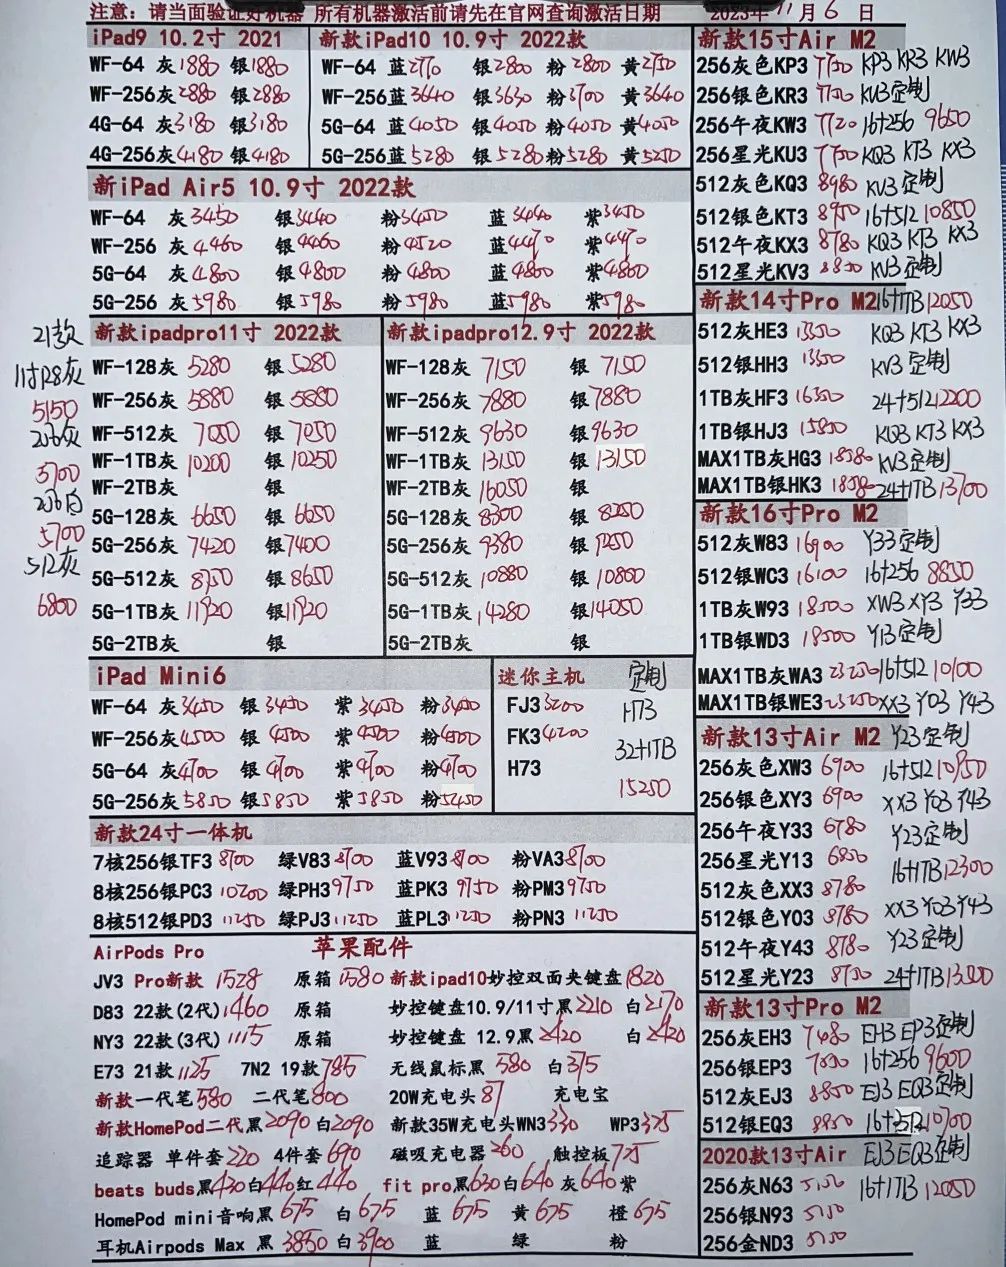 注意：请当面验证好机器 所有机器激活前请先在官网查询激活日期 2023年11月6日
iPad9 10.2寸 2021
WF-64 灰1880 银1880
WF-256灰2880 银2880
4G-64 灰3180 银3180
4G-256灰4180 银4180
新款iPad10 10.9寸 2022款
WF-64 蓝2770 银2800 粉2800 黄2750
WF-256蓝3640 银3630 粉3700 黄3640
5G-64 蓝4050 银4050 粉4050 黄4050
5G-256蓝5280 银5280 粉5280 黄5250
新iPad Air5 10.9寸 2022款
WF-64 灰3450 银3440 粉3450 蓝3440 紫3450
WF-256 灰4460 银4460 粉4520 蓝4470 紫4470
5G-64 灰4800 银4800 粉4800 蓝4800 紫4800
5G-256 灰5980 银5980 粉5980 蓝5980 紫5980
21款
11寸128灰
5150
256灰
5700
256白
5700
512灰
6800
新款ipadpro11寸 2022款
WF-128灰 5280 银 5280
WF-256灰 5880 银 5880
WF-512灰 7050 银 7050
WF-1TB灰 10200 银 10250
WF-2TB灰 银
5G-128灰 6650 银 6650
5G-256灰 7420 银 7400
5G-512灰 8750 银 8650
5G-1TB灰 11920 银11920
5G-2TB灰 银
新款ipadpro12.9寸 2022款
WF-128灰 7150 银 7150
WF-256灰 7880 银 7880
WF-512灰 9630 银9630
WF-1TB灰 13150 银 13150
WF-2TB灰 16050 银
5G-128灰 8300 银 8250
5G-256灰 9380 银
5G-512灰 10880 银 10800
5G-1TB灰 14280 银14050
5G-2TB灰 银
iPad Mini6
WF-64 灰3450 银 3450 紫 3450 粉3450
WF-256灰4500 银 4500 紫 4500 粉4500
5G-64 灰4700 银 4700 紫 4700 粉4700
5G-256灰5850 银5850 紫 5850 粉5450
迷你主机 定制
FJ3 3200 H73
FK3 4200 32+1TB
H73 15250
新款24寸一体机
7核256银TF3 8700 绿V83 8700 蓝V93 8700 粉VA3 8700
8核256银PC3 10200 绿PH3 9750 蓝PK3 9750 粉PM3 9750
8核512银PD3 11250 绿PJ3 11250 蓝PL3 11250 粉PN3 11250
AirPods Pro 苹果配件
JV3 Pro新款 1528 原箱 1580 新款ipad10妙控双面夹键盘1820
D83 22款(2代)1460 原箱 妙控键盘10.9/11寸黑2210 白2170
NY3 22款(3代)1115 原箱 妙控键盘 12.9黑2420 白2420
E73 21款1125 7N2 19款785 无线鼠标黑 580 白375
新款一代笔580 二代笔800 20W充电头 87 充电宝
新款HomePod二代黑2090白2090 新款35W充电头WN3 330 WP3 325
追踪器 单件套220 4件套690 磁吸充电器260 触控板725
beats buds黑430白440红440 fit pro黑630白640灰640紫
HomePod mini音响黑675 白675 蓝675 黄675 橙675
耳机Airpods Max 黑 3850 白3900 蓝 绿 粉
新款15寸Air M2
256灰色KP3 7750 KP3 KR3 KW3
256银色KR3 7750 KU3定制
256午夜KW3 7720 16+256 9650
256星光KU3 7750 KQ3 KT3 KX3
512灰色KQ3 8980 KV3定制
512银色KT3 8950 16+512 10850
512午夜KX3 8780 KQ3 KT3 KX3
512星光KV3 8850 KV3定制
新款14寸Pro M2 16+1TB 12050
512灰HE3 13550 KQ3 KT3 KX3
512银HH3 13500 KV3定制
1TB灰HF3 16350 24+512 12200
1TB银HJ3 15850 KQ3 KT3 KX3
MAX1TB灰HG3 18580 KV3定制
MAX1TB银HK3 18580 24+1TB 13700
新款16寸Pro M2
512灰W83 16900 Y33定制
512银WC3 16100 16+256 8850
1TB灰W93 18500 XW3 XY3 Y33
1TB银WD3 18500 Y13定制
MAX1TB灰WA3 23250 16+512 10100
MAX1TB银WE3 23250 XX3 Y03 Y43
新款13寸Air M2 Y23定制
256灰色XW3 6900 16+512 10950
256银色XY3 6900 XX3 Y03 Y43
256午夜Y33 6780 Y23定制
256星光Y13 6850 16+1TB 12300
512灰色XX3 8780 XX3 Y03 Y43
512银色Y03 8780 Y23定制
512午夜Y43 8780
512星光Y23 8750 24+1TB 13000
新款13寸Pro M2
256灰EH3 7480 EH3 EP3定制
256银EP3 7650 16+256 9600
512灰EJ3 8850 EJ3 EQ3定制
512银EQ3 8850 16+512 10700
2020款13寸Air EJ3 EQ3定制
256灰N63 5150 16+1TB 12050
256银N93 5150
256金ND3 5150